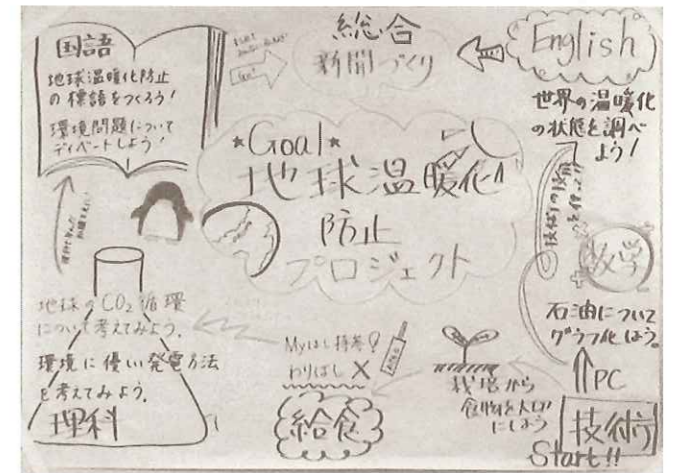 国語
地球温暖化防止
の標語をつくろう!
環境問題について
ディベートしよう!
総合
新聞づくり
English
世界の温暖化
の状態を調べ
よう!
*Goal*
地球温暖化
防止
プロジェクト
数学
石油について
グラフ化しよう。
PC
技術
Start!!
栽培から
食物を大切
にしよう
Myはし持参!
わりばし×
給食
地球のCO₂循環
について考えてみよう。
環境に優しい発電方法
を考えてみよう。
理科